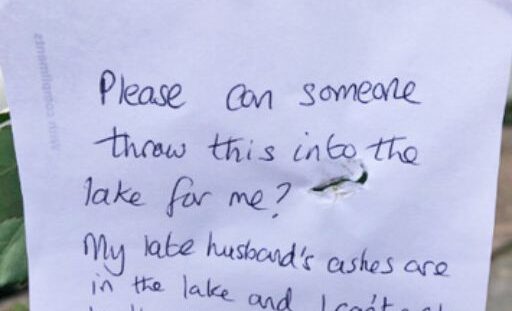 with compliments
Please can someone
throw this into the
lake for me?
My late husband's ashes are
in the lake and I can't